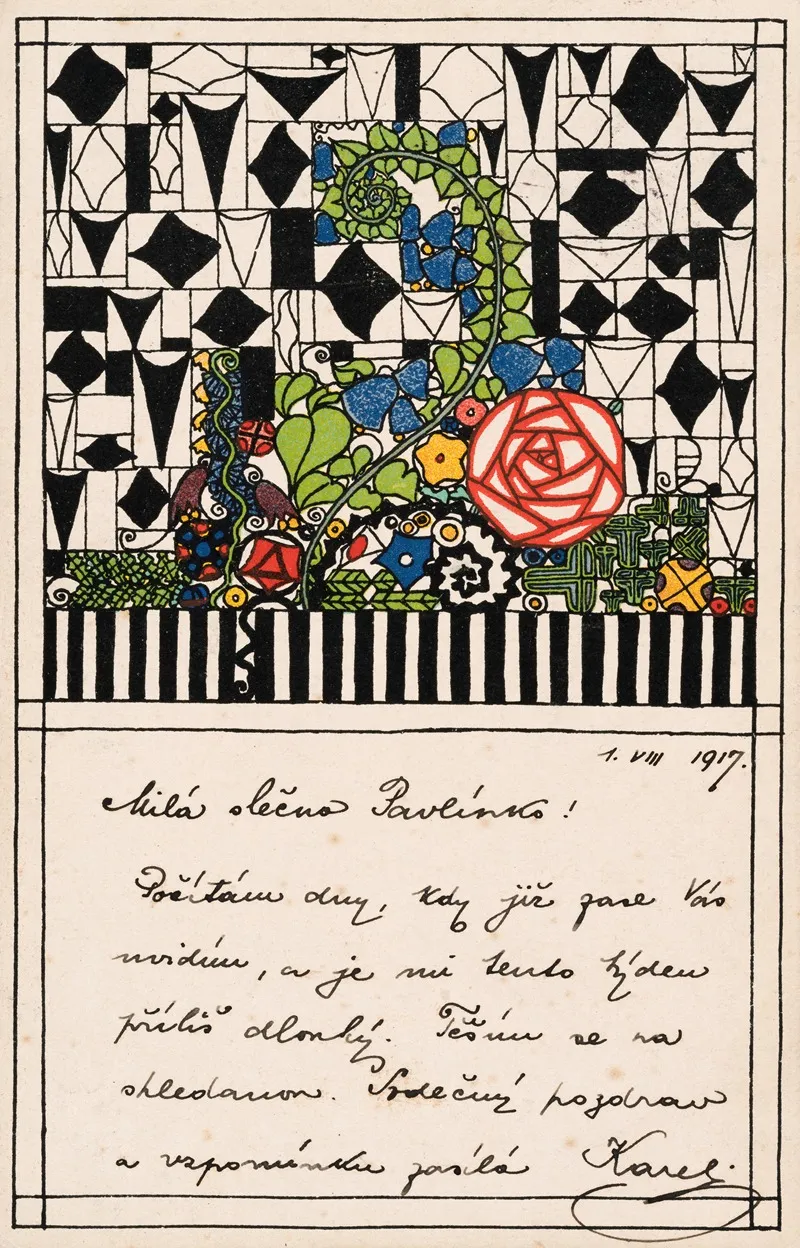 1. VIII 1917.
Milá slečno Pavlínko!
Počítám dny, kdy již zase Vás
uvidím, a je mi tento týden
příliš dlouhý. Těším se na
shledanou. Srdečný pozdrav
a vzpomínku zasílá Karel.